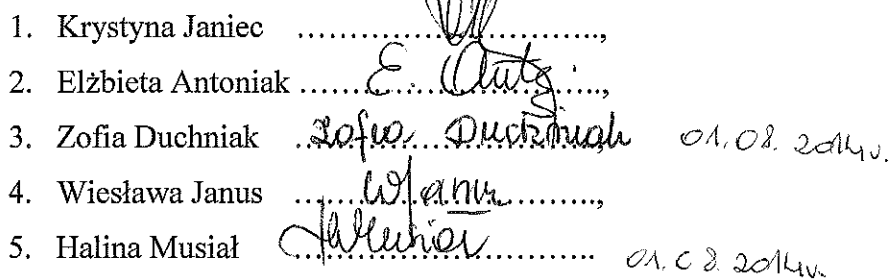 1. Krystyna Janiec ..............................,
2. Elżbieta Antoniak ....... E. Ant ..........,
3. Zofia Duchniak Zofia Duchniak 01.08.2014r.
4. Wiesława Janus ...... WJanus ..........,
5. Halina Musiał HMusiał .......... 01.08.2014r.